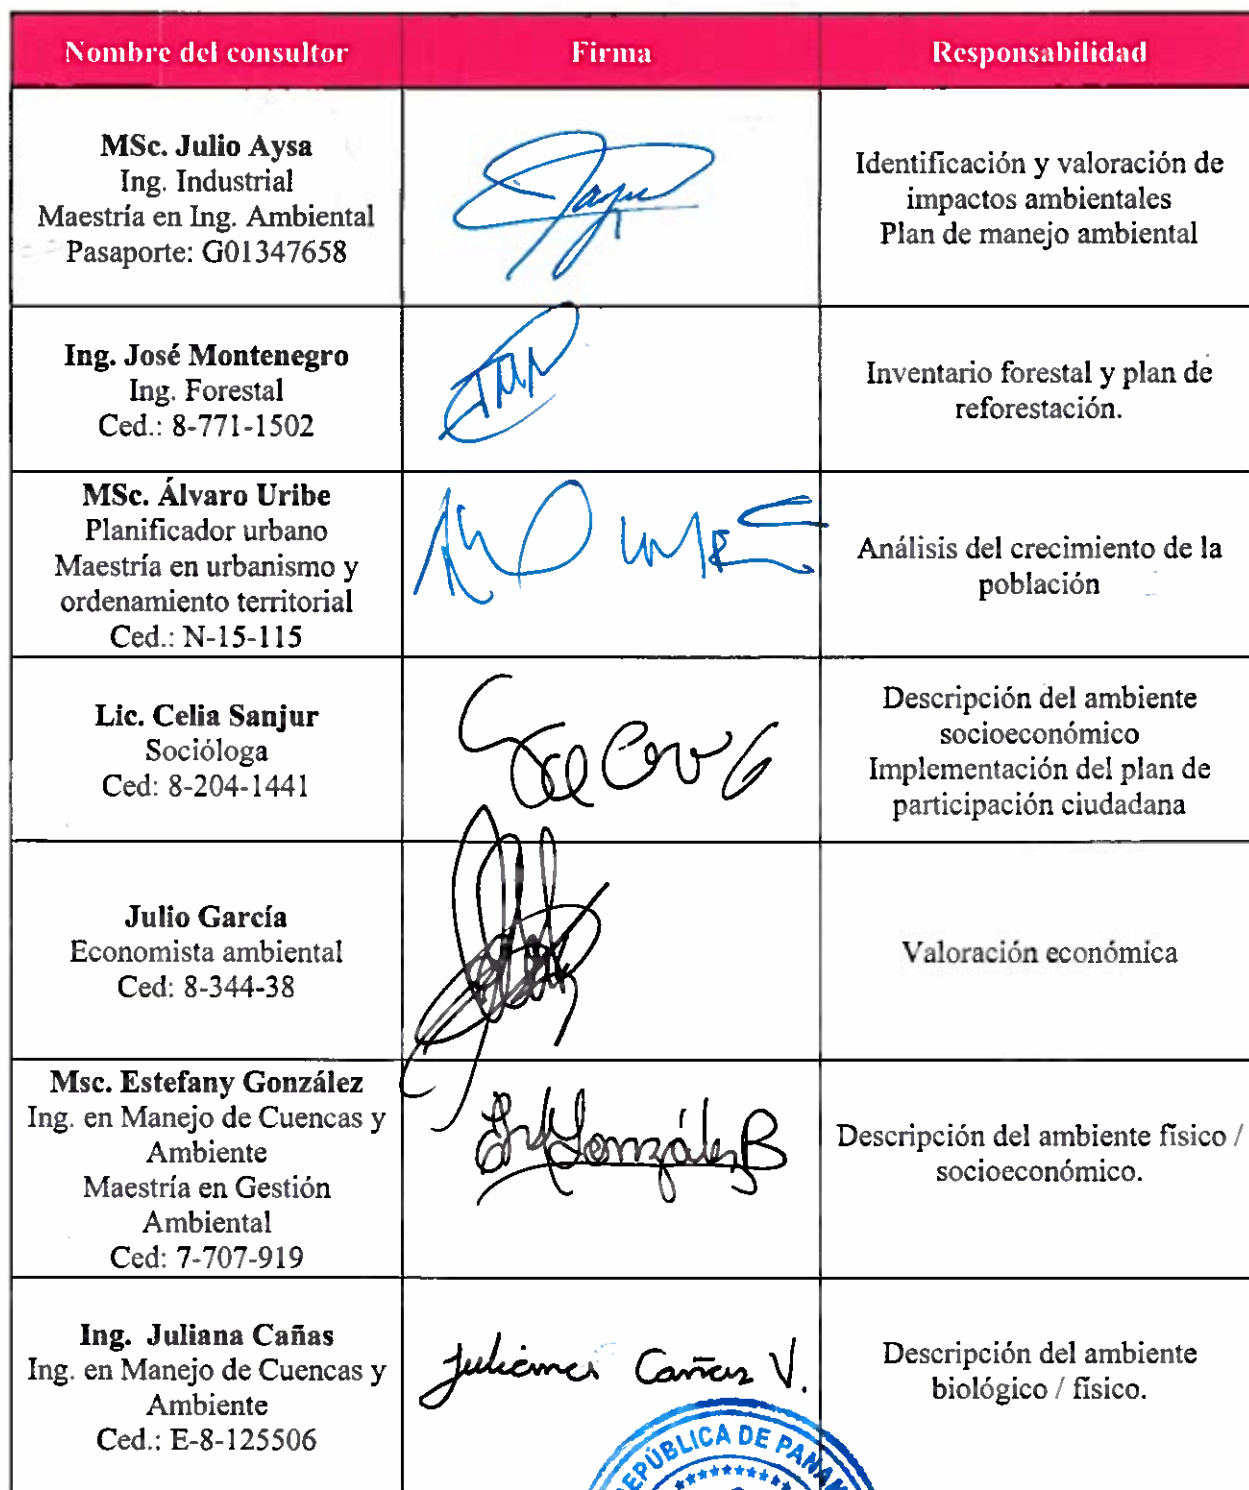 Nombre del consultor
Firma
Responsabilidad
MSc. Julio Aysa
Ing. Industrial
Maestría en Ing. Ambiental
Pasaporte: G01347658
Identificación y valoración de
impactos ambientales
Plan de manejo ambiental
Ing. José Montenegro
Ing. Forestal
Ced.: 8-771-1502
Inventario forestal y plan de
reforestación.
MSc. Álvaro Uribe
Planificador urbano
Maestría en urbanismo y
ordenamiento territorial
Ced.: N-15-115
Análisis del crecimiento de la
población
Lic. Celia Sanjur
Socióloga
Ced: 8-204-1441
Descripción del ambiente
socioeconómico
Implementación del plan de
participación ciudadana
Julio García
Economista ambiental
Ced: 8-344-38
Valoración económica
Msc. Estefany González
Ing. en Manejo de Cuencas y
Ambiente
Maestría en Gestión
Ambiental
Ced: 7-707-919
González B
Descripción del ambiente físico /
socioeconómico.
Ing. Juliana Cañas
Ing. en Manejo de Cuencas y
Ambiente
Ced.: E-8-125506
Juliana Cañas V.
Descripción del ambiente
biológico / físico.
REPÚBLICA DE PANAM